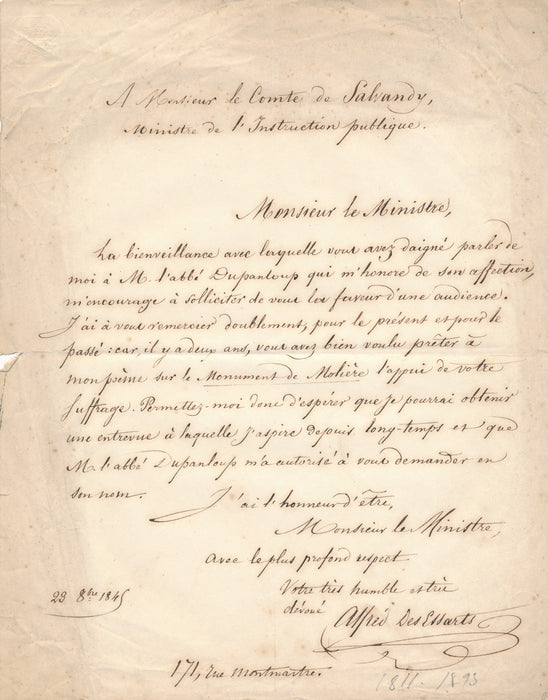 A Monsieur le Comte de Salvandy,
Ministre de l'Instruction publique.
Monsieur le Ministre,
La bienveillance avec laquelle vous avez daigné parler de
moi à M. l'abbé Dupanloup qui m'honore de son affection,
m'encourage à solliciter de vous la faveur d'une audience.
J'ai à vous remercier doublement, pour le présent et pour le
passé : car, il y a deux ans, vous avez bien voulu prêter à
mon poème sur le Monument de Molière l'appui de votre
suffrage. Permettez-moi donc d'espérer que je pourrai obtenir
une entrevue à laquelle j'aspire depuis long-temps et que
M. l'abbé Dupanloup m'a autorisé à vous demander en
son nom.
J'ai l'honneur d'être,
Monsieur le Ministre,
avec le plus profond respect
Votre très humble et très
dévoué
Alfred Des Essarts
23 8bre 1845
171, rue Montmartre.
1811-1893